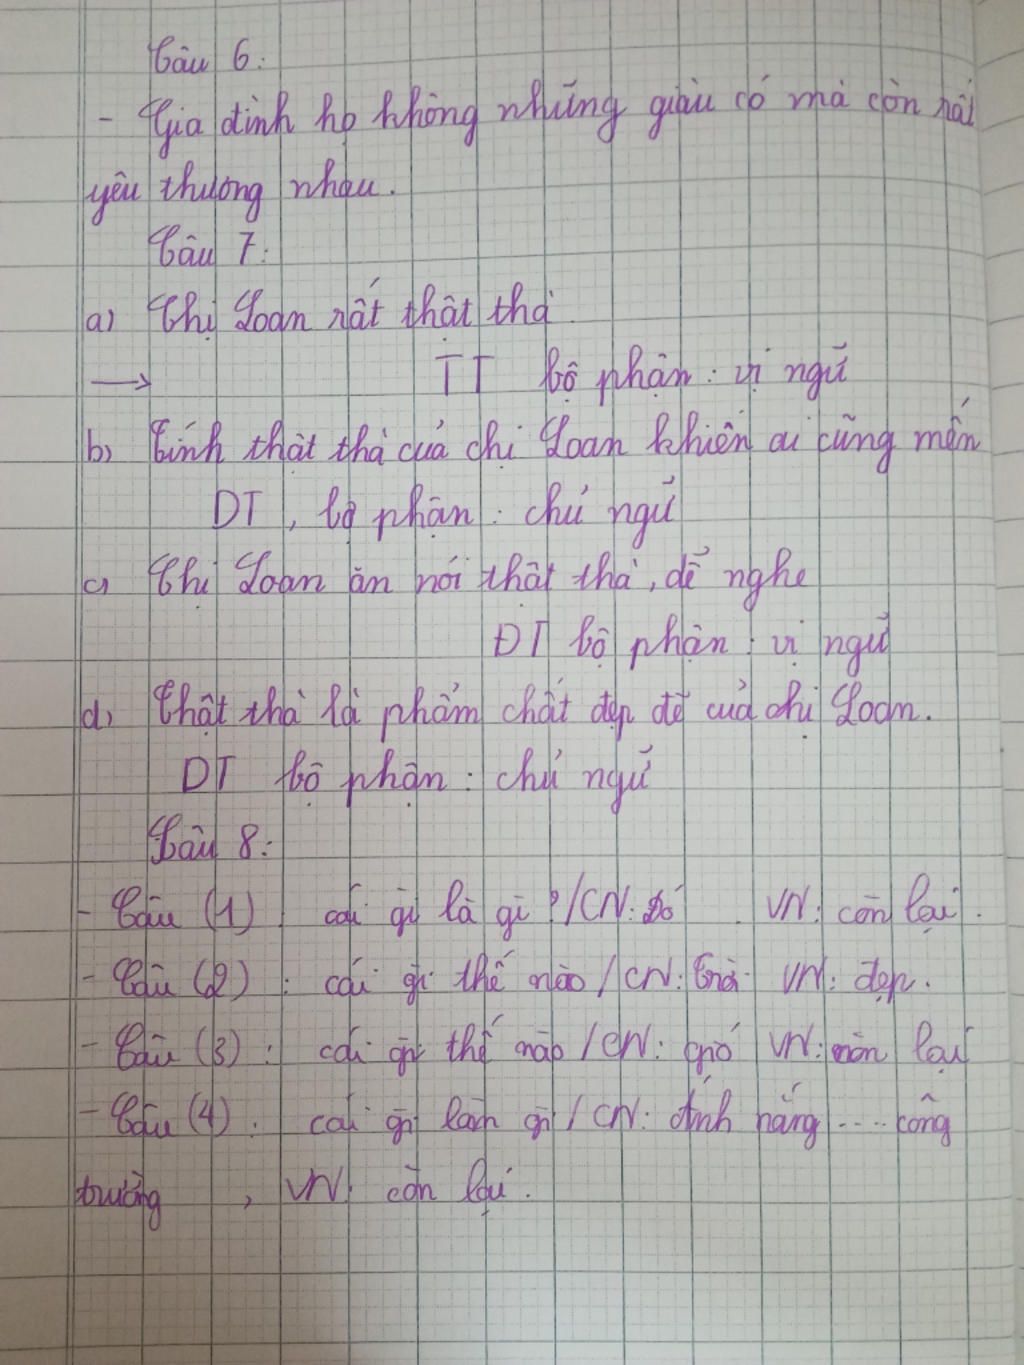 Câu 6:
- Gia đình họ không những giàu có mà còn rất
yêu thương nhau.
Câu 7:
a) Chị Loan rất thật thà.
→ TT bộ phận: vị ngữ
b) Tính thật thà của chị Loan khiến ai cũng mến
DT, bộ phận: chủ ngữ
c) Chị Loan ăn nói thật thà, dễ nghe
ĐT bộ phận: vị ngữ
d) Thật thà là phẩm chất đẹp đẽ của chị Loan.
DT bộ phận: chủ ngữ
Câu 8:
- Câu (1): cái gì là gì?/CN: Đó. VN: còn lại.
- Câu (2): cái gì thế nào/CN: Trời VN: đẹp.
- Câu (3): cái gì thế nào/CN: gió VN: còn lại
- Câu (4): cái gì làm gì/CN: ánh nắng .... công
trường, VN: còn lại.